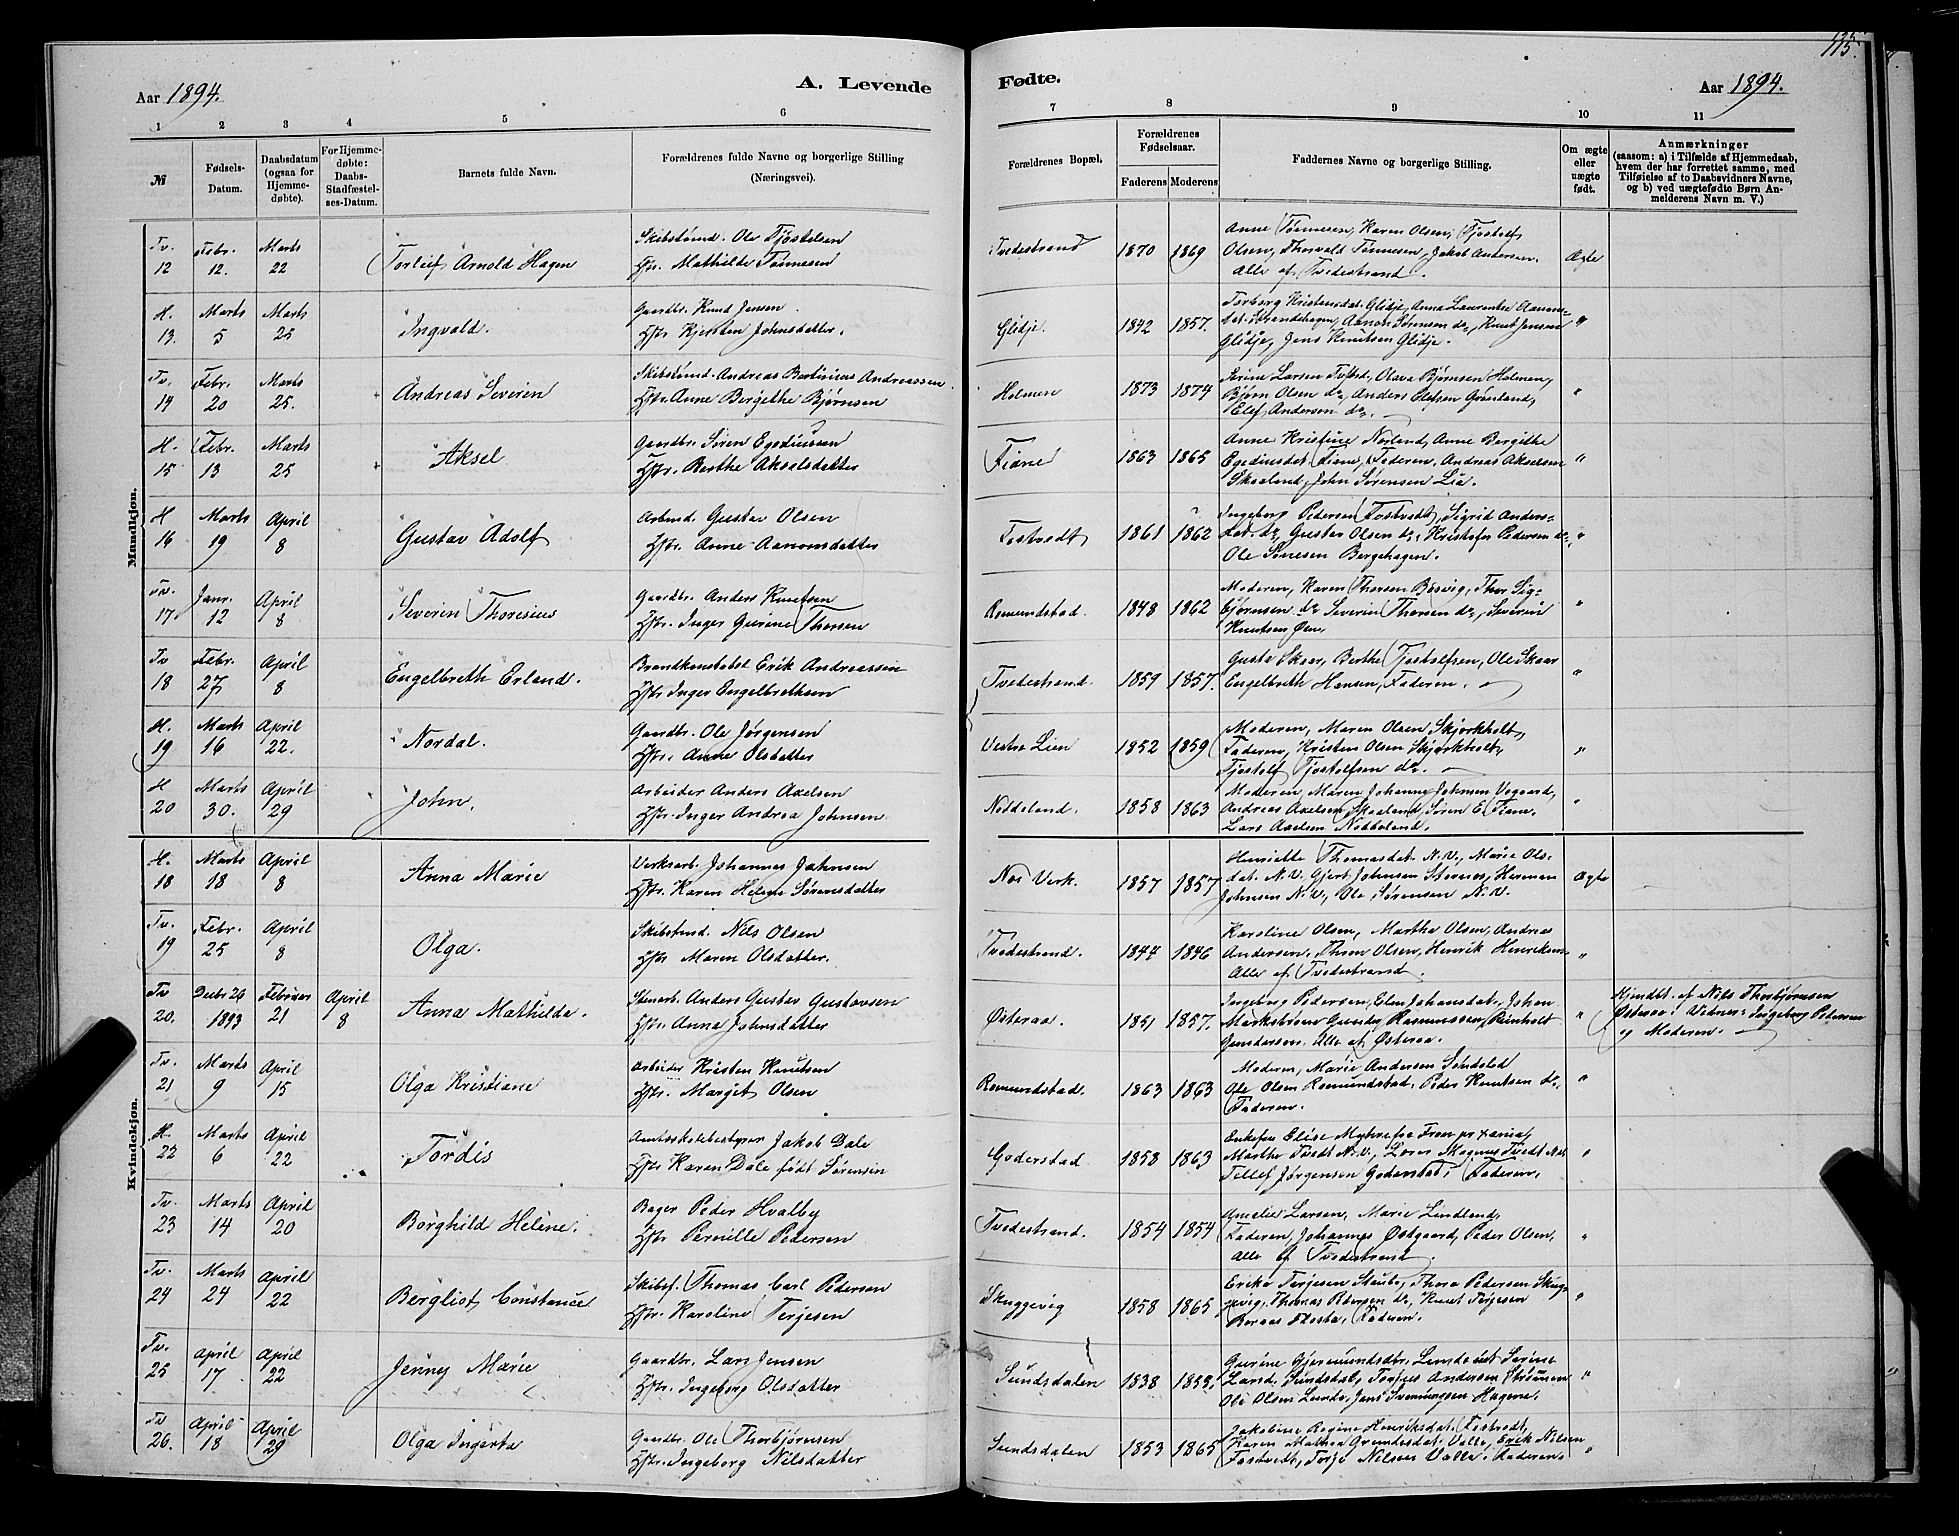 115.
Aar 1894.
A. Levende
Fødte.
Aar 1894.
1 2 3 4 5 6 7 8 9 10 11
№
Fødsels-
Datum.
Daabsdatum
(ogsaa for
Hjemme-
døbte).
For Hjemme-
døbte:
Daabs-
Stadfæstel-
ses-Datum.
Barnets fulde Navn.
Forældrenes fulde Navne og borgerlige Stilling
(Næringsvei).
Forældrenes Bopæl.
Forældrenes
Fødselsaar.
Faderens Moderens
Faddernes Navne og borgerlige Stilling.
Om ægte
eller
uægte
født.
Anmærkninger
(saasom: a) i Tilfælde af Hjemmedaab,
hvem der har forrettet samme, med
Tilføielse af to Daabsvidners Navne,
og b) ved uægtefødte Børn An-
melderens Navn m. V.)
Mandkjøn.
Tv. 12 Febr. 12. Marts 22 Torleif Arnold Hagen
Skibstømd. Ole Tjostelsen
Hstr. Mathilde Tønnesen
Tvedestrand 1870 1869
Anne Tønnesen, Karen Olsen, Tjostolf
Olsen, Thorvald Tønnesen, Jakob Andersen.
Alle af Tvedestrand.
Ægte
H. 13. Marts 5 Marts 25 Ingvald.
Gaardbr. Knud Jensen.
Hstr. Kjersten Johnsdatter.
Glidje. 1842 1857.
Torborg Kristensdat. Glidje, Anna Laurentse Aanons-
dat. Strandhagen, Aanon Sørensen do, Knut Jensen
Glidje, Jens Knutsen Glidje.
"
Tv. 14 Febr. 20 Marts 25. Andreas Severin
Skibstømd. Andreas Bertinius Andreassen.
Hstr. Anne Bergithe Bjørnsen
Holmen 1873 1874
Larsen Tvstrd., Olava Bjørnsen Holmen,
Bjørn Olsen do, Anders Olefsen Grønland,
Elef Andersen do.
"
H. 15 Febr. 13 Marts 25 Aksel
Gaardbr. Søren Egediussen
Hstr. Berthe Akselsdatter
Fiane 1863 1865
Anne Kristine Norland, Anne Bergithe
Egediusdat. Fiane, Faderen, Andreas Akselsen
Skaaland, John Sørensen Lia.
"
H 16 Marts 19 April 8 Gustav Adolf
Arbmd. Gustav Olsen
Hstr. Anne Aanonsdatter
Fostvedt 1861 1862
Ingeborg Pedersen Fostvedt, Sigrid Anders-
dat. do, Gustav Olsen do, Kristofer Pedersen do.,
Ole Bergehagen.
"
Tv. 17. Janr. 12 April 8 Severin Thoresius
Gaardbr. Anders Knutsen
Hstr. Inger Gurine Thorsen
Romundstad. 1848 1862
Moderen, Karen Thorsen Bosvig, Thor Sig-
bjørnsen do, Severin Thorsen do, Severin
Knutsen Øen,
"
Tv 18 Febr. 27 April 8 Engelbreth Erland.
Brandkonstabel Erik Andreassen
Hstr Inger Engelbrethsen
Tvedestrand. 1859 1857.
Gusta Skaar, Berthe Tjostolfsen, Ole Skaar
Engelbreth Hansen, Faderen.
"
H. 19 Marts 16 April 22. Nordal.
Gaardbr. Ole Jørgensen
Hstr. Anne Olsdatter
Vestre Lien 1852 1859
Moderen, Maren Olsen Skjørkholt,
Faderen, Kristen Olsen Skjørkholt,
Tjostolf Tjostolfsen do.
"
H 20 Marts 30. April 29 John.
Arbeider Anders Axelsen
Hstr. Inger Andrea Johnsen
Noddeland. 1858 1863
Moderen, Maren Johanne Johnsen Vegaard,
Andreas Axelsen Skaaland, Søren E. Fiane.
Lars Axelsen Noddeland.
"
Kvindekjøn.
H. 18 Marts 18 April 8 Anna Marie
Verksarb. Johannes Johnsen
Hstr. Karen Helene Sørensdatter
Nes Verk. 1857 1857
Henriette Thomasdat. N.V., Marie Ols-
dat. N.V, Gjert Johnsen Herman
Johnsen N.V., Ole Sørensen N.V.
Ægte
Tv. 19 Febr. 25 April 8 Olga.
Skibstmd. Nils Olsen
Hstr Maren Olsdatter.
Tvedestrand. 1844 1846
Karoline Olsen, Marthe Olsen, Andreas
Andersen, Olsen, Henrik Henriksen
Alle af Tvedestrand.
"
Tv 20. Decbr 26 1893 Februar 21 April 8 Anna Mathilde.
Stenarb. Anders Gustav Gustavsen
Hstr. Anna Johnsdatter
Østeraa. 1851 1857.
Ingeborg Pedersen, Elen Johansdat., Johan
Gunder Rasmussen Reinholt
Gundersen. Alle af Østeraa.
"
Hjmdbt. af Nils Thorbjørnsen
Østeraa. Vidner: Ingeborg Pedersen
og Moderen.
Tv. 21 Marts 9 April 15 Olga Kristiane
Arbeider Kristen Knutsen
Hstr. Margit Olsen
Romundstad. 1863 1863
Moderen, Marie Andersen Søndeled
Ole Olsen Romundstad, Peder Knutsen do,
Faderen.
"
H. 22 Marts 6 April 22 Tordis
Amtsskolebestyrer Jakob Dale
Hstr Karen Dale født Sørensen
Goderstad. 1858 1863
Enkefru Elise Myhre fra
Marthe Tvedt N.V., Magnus Tvedt
Tellef Jørgensen Goderstad, Faderen,
"
Tv. 23 Marts 14 April 20 Borghild Helene.
Bager Peder Hvalby
Hstr Pernille Pedersen
Tvedestrand. 1854 1854
Amelie Larsen, Marie Lindland,
Faderen, Johannes Østgaard, Peder Olsen,
Alle af Tvedestrand.
"
Tv. 24 Marts 24 April 22 Bergliot Constance
Skibsf. Thomas Carl Pedersen
Hstr. Karoline Terjesen
Skuggevig 1858 1865
Erika Terjesen Staubø, Thora Pedersen Skug-
gevig, Thomas do, Knut Terjesen
Faderen.
"
Tv. 25 April 17 April 22 Jenney Marie
Gaardbr. Lars Jensen
Hstr. Ingeborg Olsdatter
Sundsdalen 1838 1853.
Gurine Gjermundsdtr.
Larsd. Sundsdal, Terjus Andersen
Ole Olsen Lunde, Jens Hagene.
"
Tv 26. April 18 April 29 Olga Ingerta
Gaardbr. Ole Thorbjørnsen
Hstr. Ingeborg Nilsdatter
Sundsdalen 1853 1865
Jakobine Regine Henriksdat. Fostvedt,
Karen Mathea Valle, Erik Nilsen
Fostvedt, Terje Nilsen Valle. Faderen.
"